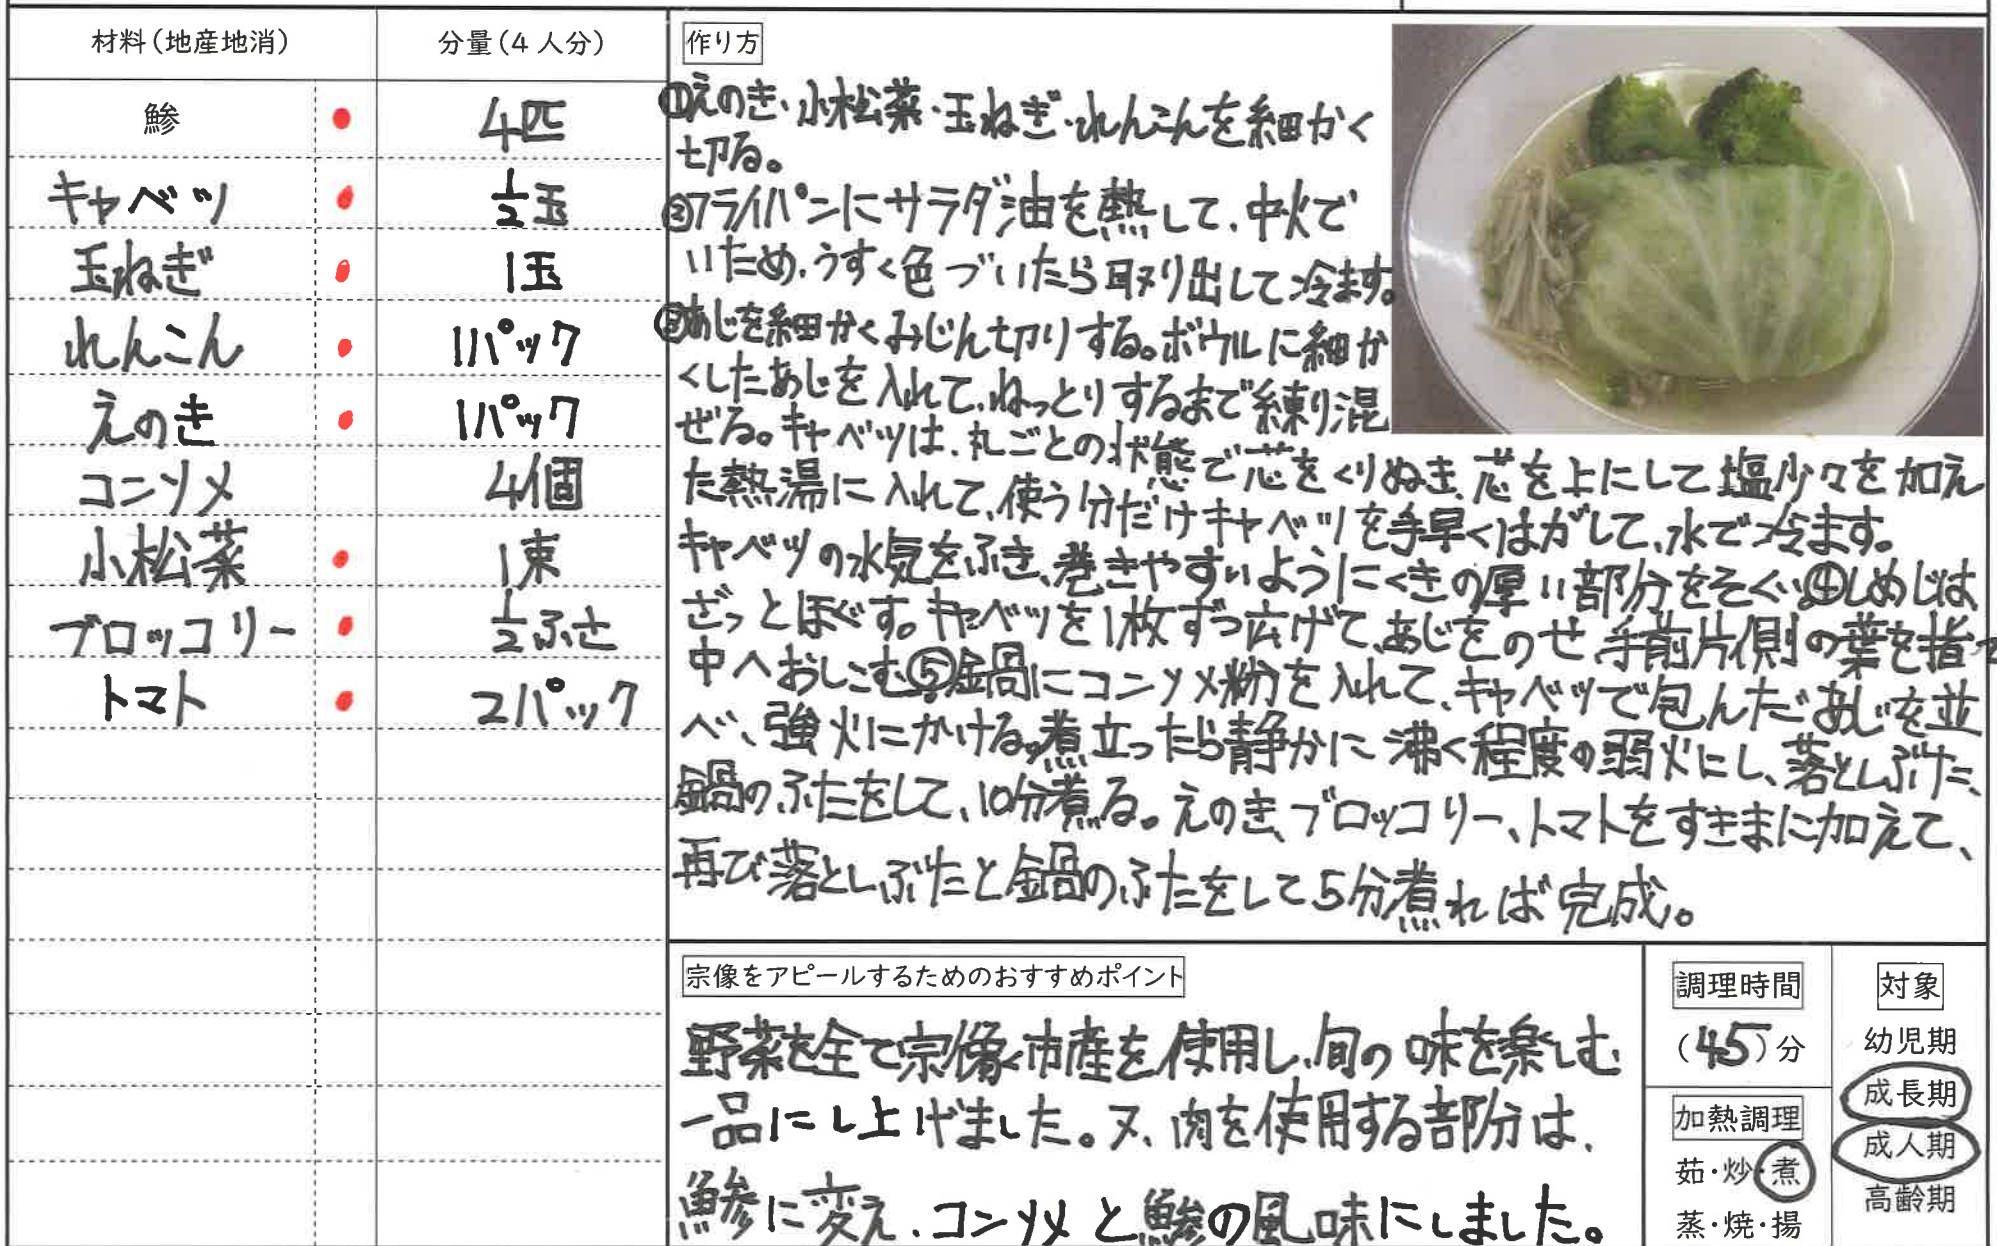 材料(地産地消) 分量(4人分)
鯵 4匹
キャベツ 1/2玉
玉ねぎ 1玉
れんこん 1パック
えのき 1パック
コンソメ 4個
小松菜 1束
ブロッコリー 1/2ふさ
トマト 2パック
作り方
①えのき・小松菜・玉ねぎ・れんこんを細かく
切る。
②フライパンにサラダ油を熱して、中火で
いため、うすく色づいたら取り出して冷ます。
③あじを細かくみじん切りする。ボウルに細か
くしたあじを入れて、ねっとりするまで練り混
ぜる。キャベツは、丸ごとの状態で芯をくりぬき、芯を上にして塩少々を加え
た熱湯に入れて、使う分だけキャベツを手早くはがして、水で冷ます。
キャベツの水気をふき、巻きやすいようにくきの厚い部分をそぐ。④しめじは
ざっとほぐす。キャベツを1枚ずつ広げて、あじをのせ、手前片側の葉を指で
中へおしこむ。⑤鍋にコンソメ粉を入れて、キャベツで包んだあじを並
べ、強火にかける。煮立ったら静かに沸く程度の弱火にし、落としぶた、
鍋のふたをして、10分煮る。えのき、ブロッコリー、トマトをすきまに加えて、
再び落としぶたと鍋のふたをして5分煮れば完成。
宗像をアピールするためのおすすめポイント
野菜を全て宗像市産を使用し、旬の味を楽しむ
一品にし上げました。又、肉を使用する部分は、
鯵に変え、コンソメと鯵の風味にしました。
調理時間
(45)分
加熱調理
茹・炒・煮
蒸・焼・揚
対象
幼児期
成長期
成人期
高齢期